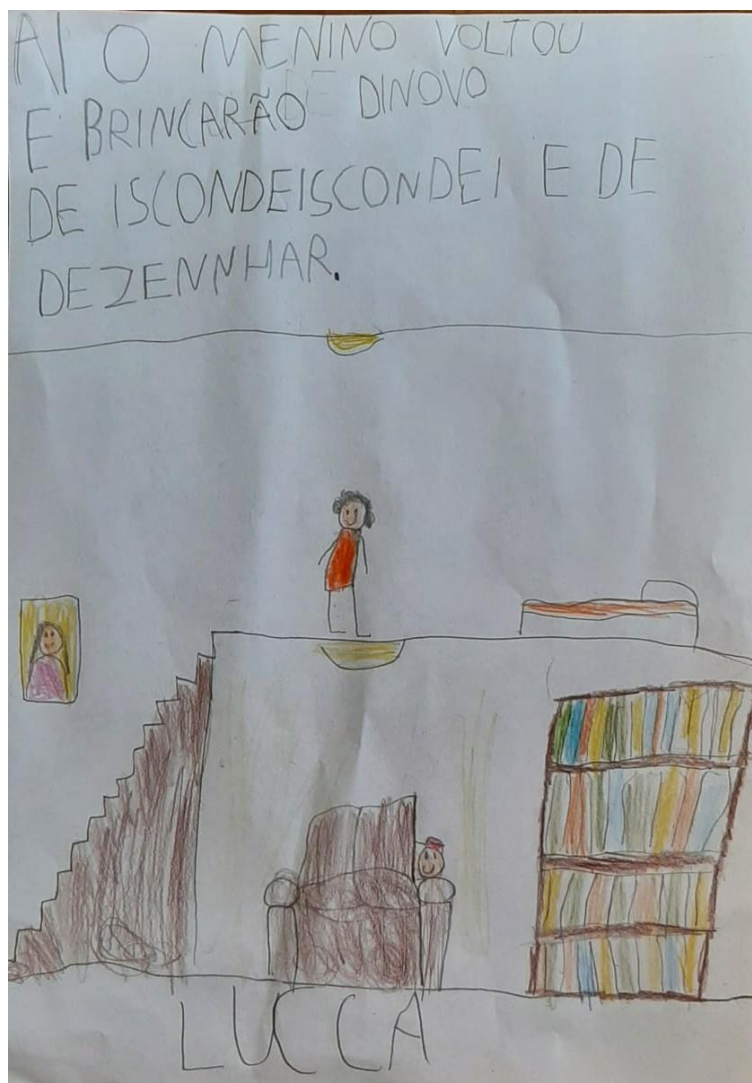 AI O MENINO VOLTOU
E BRINCARÃO DINOVO
DE ISCONDEISCONDEI E DE
DEZENNHAR.
LUCCA